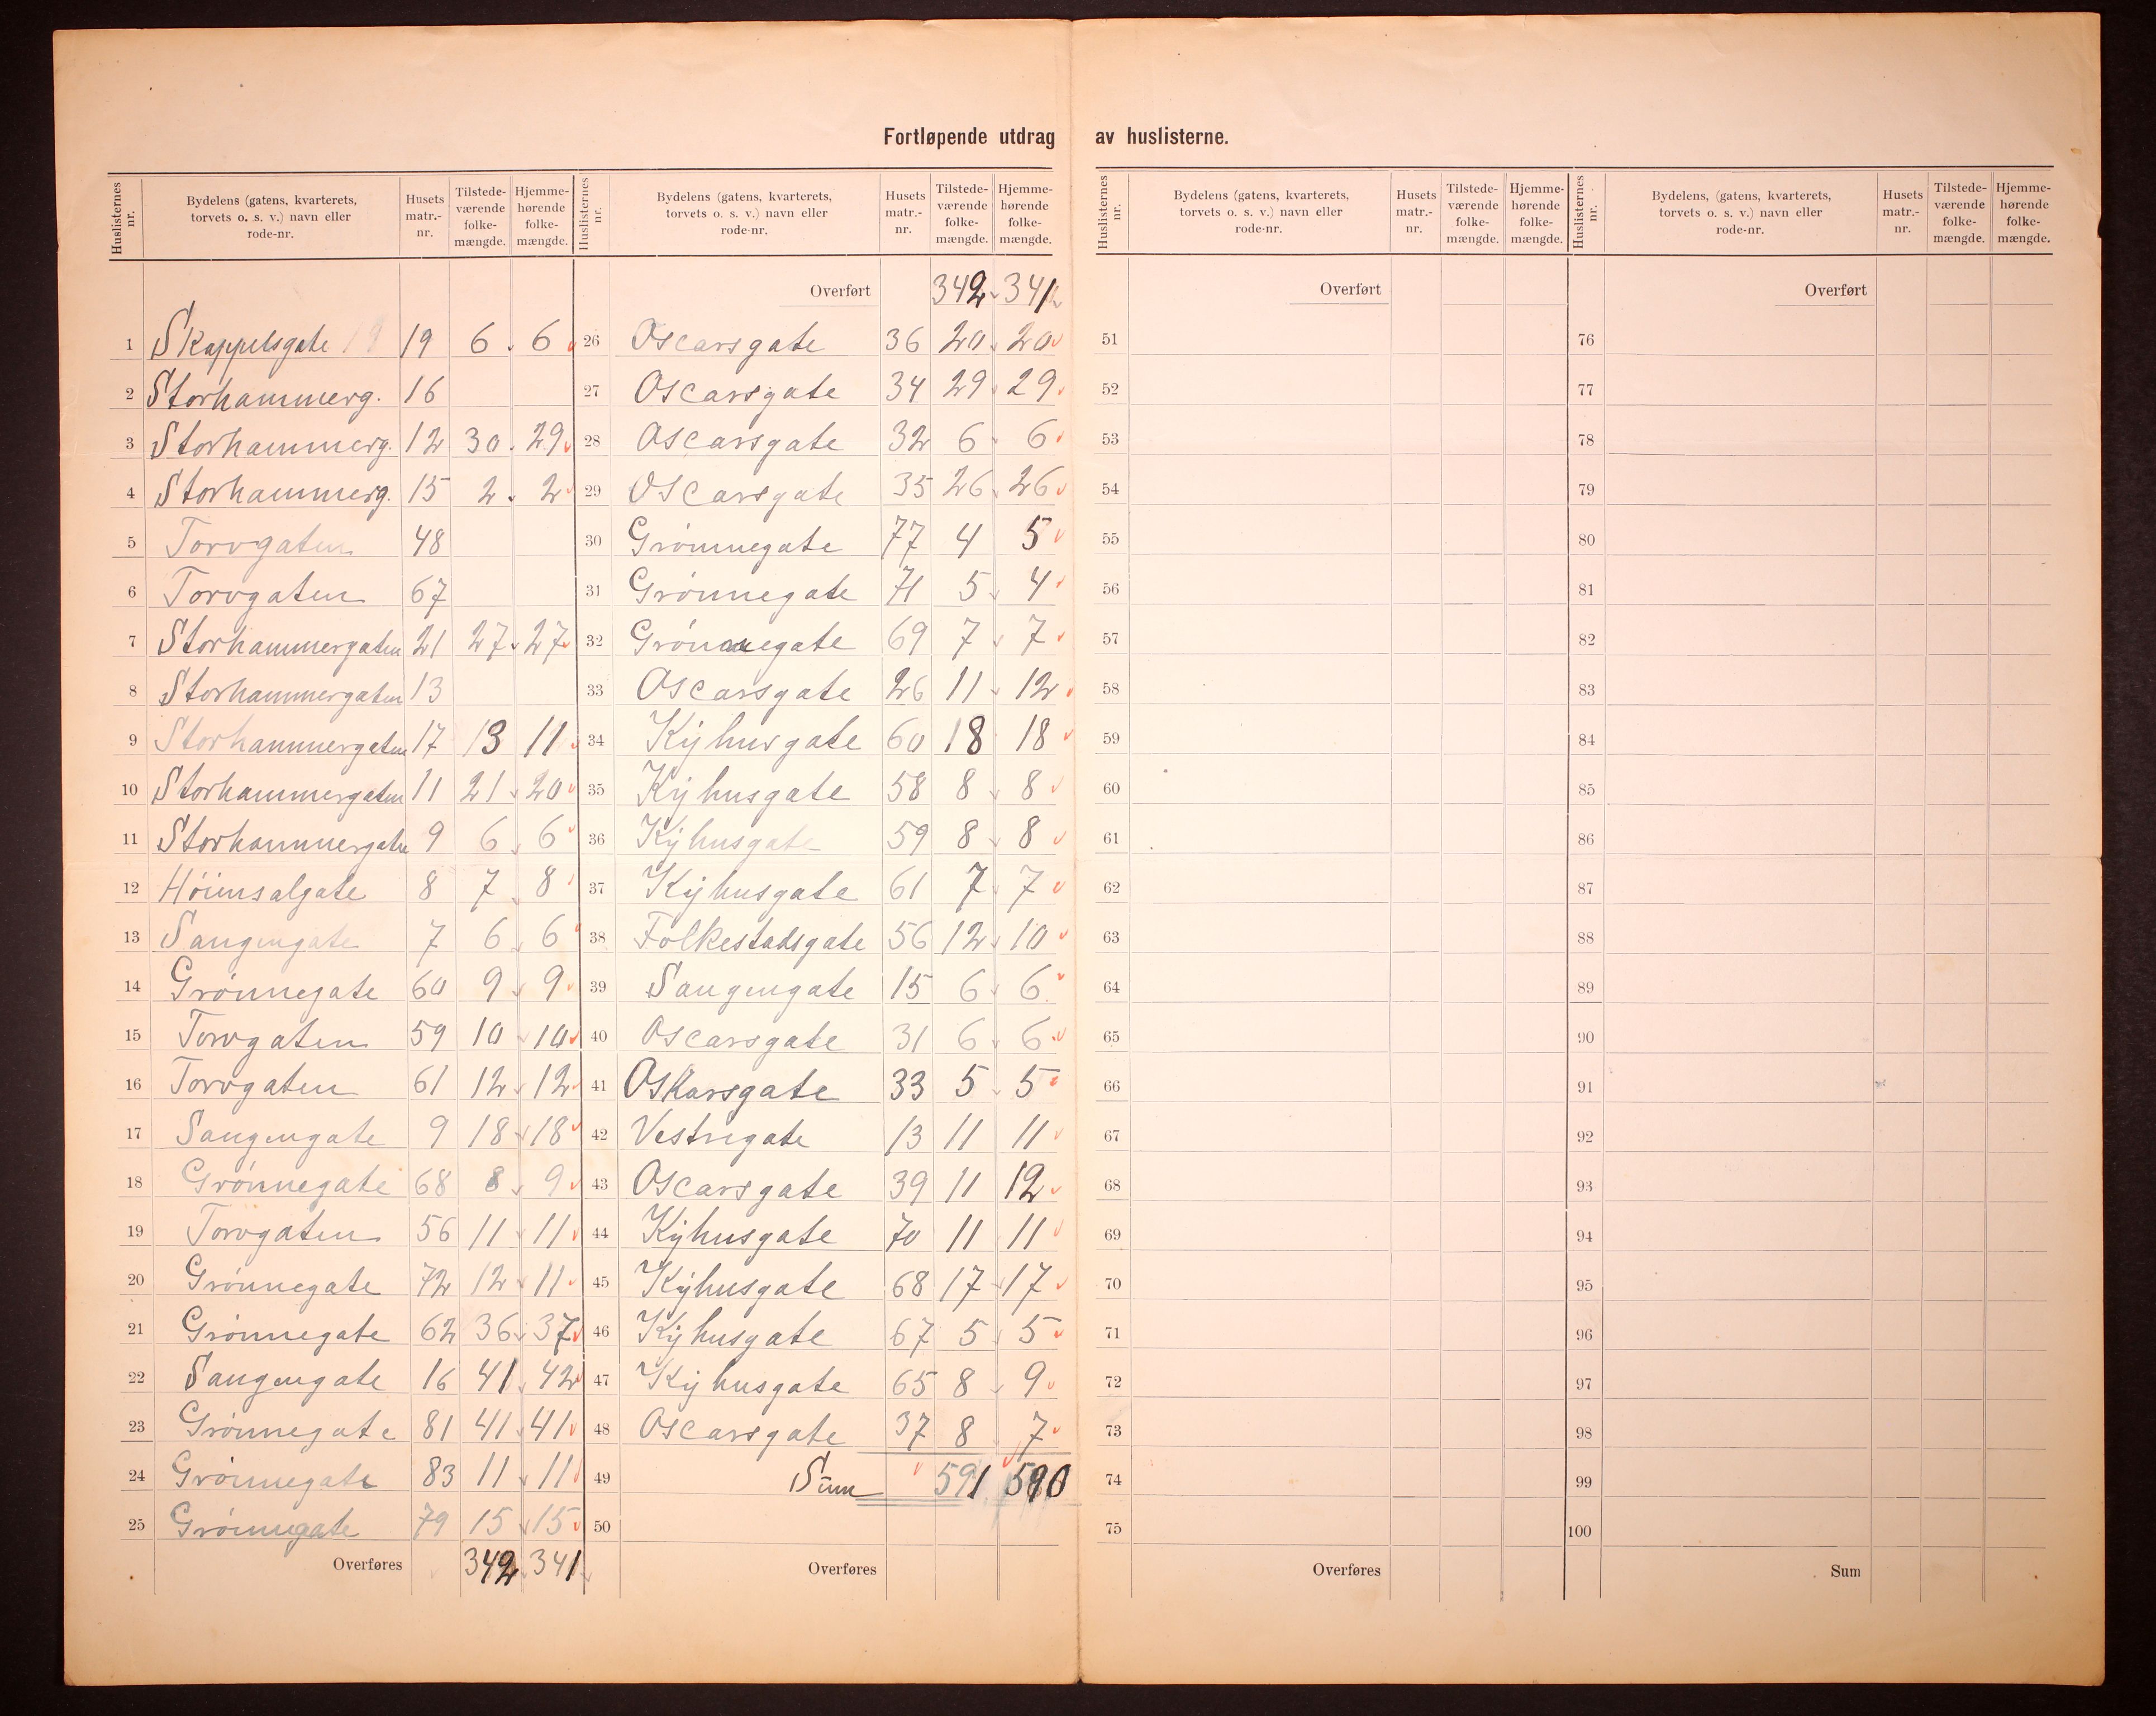 Fortløpende utdrag av huslisterne.
Huslisternes nr. | Bydelens (gatens, kvarterets, torvets o. s. v.) navn eller rode-nr. | Husets matr.-nr. | Tilstede-værende folke-mængde. | Hjemme-hørende folke-mængde.
1 Skappelsgate 19 19 6 6
2 Storhammerg. 16
3 Storhammerg. 12 30 29
4 Storhammerg. 15 2 2
5 Torvgaten 48
6 Torvgaten 67
7 Storhammergaten 21 27 27
8 Storhammergaten 13
9 Storhammergaten 17 13 11
10 Storhammergaten 11 21 20
11 Storhammergaten 9 6 6
12 Høiensalgate 8 7 8
13 Sangengate 7 6 6
14 Grønnegate 60 9 9
15 Torvgaten 59 10 10
16 Torvgaten 61 12 12
17 Sangengate 9 18 18
18 Grønnegate 68 8 9
19 Torvgaten 56 11 11
20 Grønnegate 72 12 11
21 Grønnegate 62 36 37
22 Sangengate 16 41 42
23 Grønnegate 81 41 41
24 Grønnegate 83 11 11
25 Grønnegate 79 15 15
Overføres 342 341
Huslisternes nr. | Bydelens (gatens, kvarterets, torvets o. s. v.) navn eller rode-nr. | Husets matr.-nr. | Tilstede-værende folke-mængde. | Hjemme-hørende folke-mængde.
Overført 342 341
26 Oscarsgate 36 20 20
27 Oscarsgate 34 29 29
28 Oscarsgate 32 6 6
29 Oscarsgate 35 26 26
30 Grønnegate 77 4 5
31 Grønnegate 71 5 4
32 Grønnegate 69 7 7
33 Oscarsgate 26 11 12
34 Kyhusgate 60 18 18
35 Kyhusgate 58 8 8
36 Kyhusgate 59 8 8
37 Kyhusgate 61 7 7
38 Folkestadsgate 56 12 10
39 Sangengate 15 6 6
40 Oscarsgate 31 6 6
41 Oskarsgate 33 5 5
42 Vestregate 13 11 11
43 Oscarsgate 39 11 12
44 Kyhusgate 70 11 11
45 Kyhusgate 68 17 17
46 Kyhusgate 67 5 5
47 Kyhusgate 65 8 9
48 Oscarsgate 37 8 7
49 Sum 591 590
50
Overføres
Huslisternes nr. | Bydelens (gatens, kvarterets, torvets o. s. v.) navn eller rode-nr. | Husets matr.-nr. | Tilstede-værende folke-mængde. | Hjemme-hørende folke-mængde.
Overført
51
52
53
54
55
56
57
58
59
60
61
62
63
64
65
66
67
68
69
70
71
72
73
74
75
Overføres
Huslisternes nr. | Bydelens (gatens, kvarterets, torvets o. s. v.) navn eller rode-nr. | Husets matr.-nr. | Tilstede-værende folke-mængde. | Hjemme-hørende folke-mængde.
Overført
76
77
78
79
80
81
82
83
84
85
86
87
88
89
90
91
92
93
94
95
96
97
98
99
100
Sum